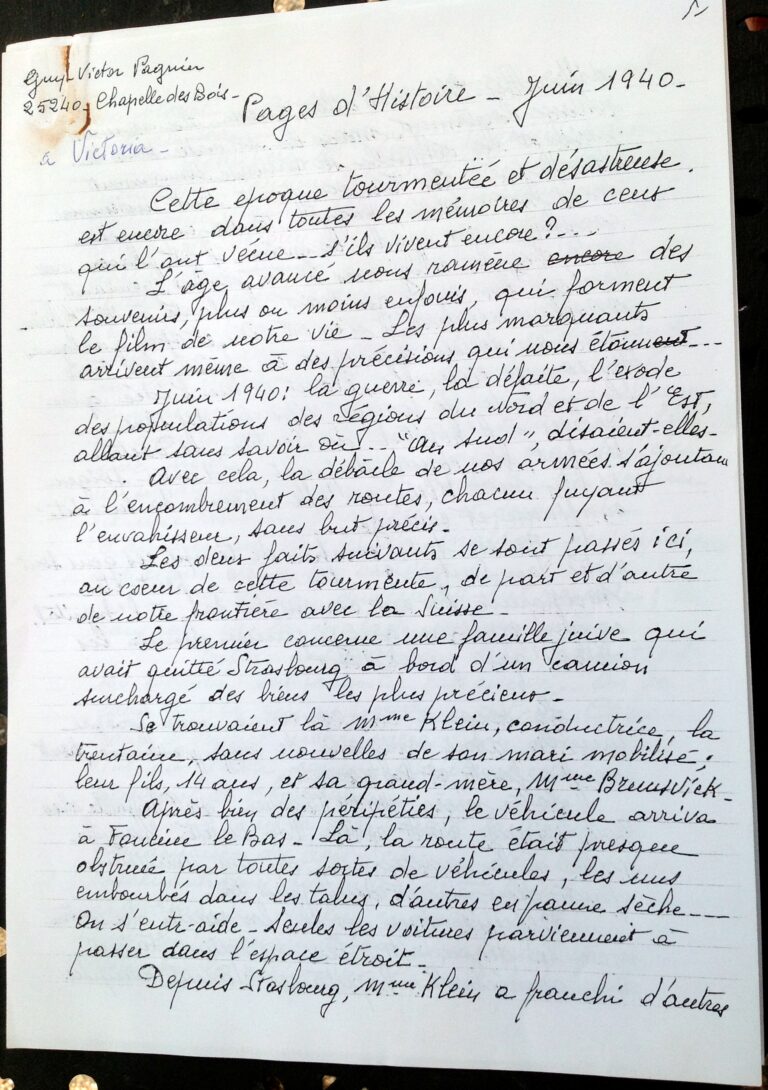 1
Guy-Victor Pagnier
25240 - Chapelle des Bois -
Pages d'Histoire - Juin 1940 -
à Victoria -
Cette epoque tourmentée et désastreuse
est encore dans toutes les mémoires de ceux
qui l'ont vécue... s'ils vivent encore?...
L'âge avancé nous ramène encore des
souvenirs, plus ou moins enfouis, qui forment
le film de notre vie - Les plus marquants
arrivent même à des précisions qui nous étonnent...
Juin 1940: la guerre, la défaite, l'exode
des populations des régions du Nord et de l'Est,
allant sans savoir où... "Au Sud", disaient-elles -
Avec cela, la débâcle de nos armées s'ajoutan
à l'encombrement des routes, chacun fuyant
l'envahisseur, sans but précis -
Les deux faits suivants se sont passés ici,
au coeur de cette tourmente, de part et d'autre
de notre frontière avec la Suisse -
Le premier concerne une famille juive qui
avait quitté Strasbourg à bord d'un camion
surchargé des biens les plus précieux -
Se trouvaient là Mme Klein, conductrice, la
trentaine, sans nouvelles de son mari mobilisé;
leur fils, 14 ans, et sa grand-mère, Mme Brunsvick -
Après bien des péripéties, le véhicule arriva
à Foncine le Bas - Là, la route était presque
obstruée par toutes sortes de véhicules, les uns
embourbés dans les talus, d'autres en panne sèche...
On s'entr-aide - seules les voitures parviennent à
passer dans l'espace étroit -
Depuis Stasbourg, Mme Klein a franchi d'autres